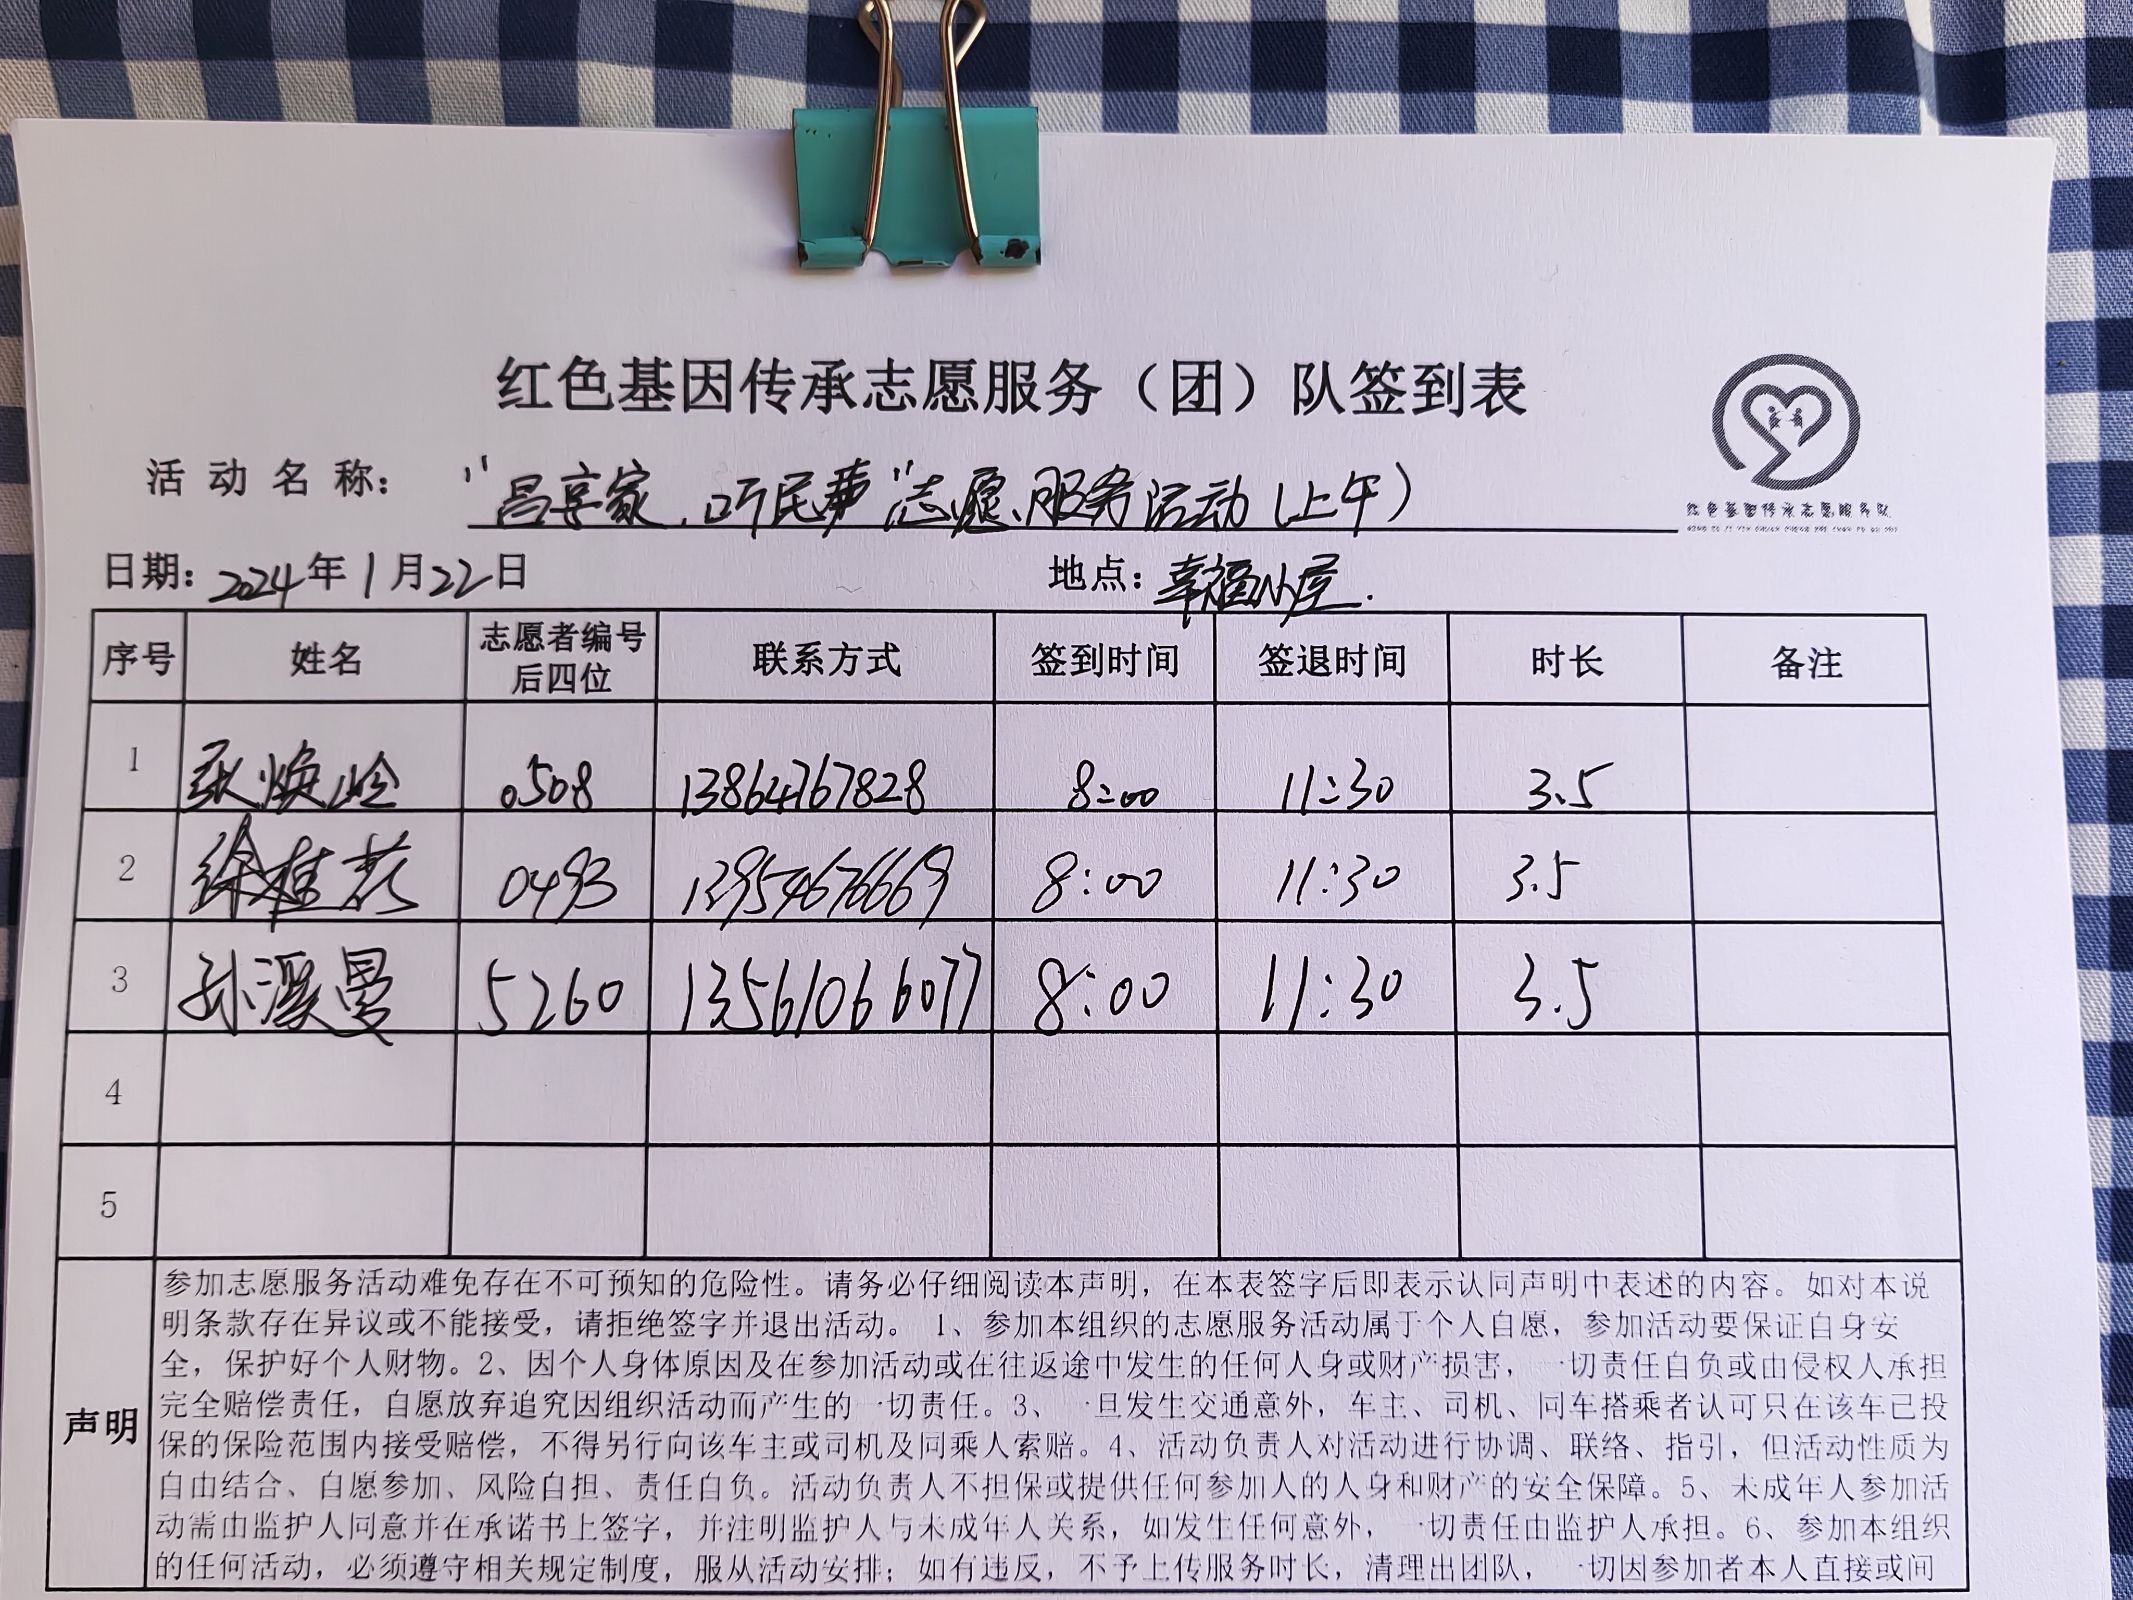 红色基因传承志愿服务（团）队签到表
活动名称："昌享家，听民事"志愿服务活动（上午）
红色基因传承志愿服务队
日期：2024年1月22日 地点：幸福小屋.
序号 姓名 志愿者编号后四位 联系方式 签到时间 签退时间 时长 备注
1 焕玲 0508 13864767828 8:00 11:30 3.5
2 徐桂花 0493 4676669 8:00 11:30 3.5
3 孙溪曼 5260 13561066077 8:00 11:30 3.5
4
5
声明
参加志愿服务活动难免存在不可预知的危险性。请务必仔细阅读本声明，在本表签字后即表示认同声明中表述的内容。如对本说
明条款存在异议或不能接受，请拒绝签字并退出活动。 1、参加本组织的志愿服务活动属于个人自愿，参加活动要保证自身安
全，保护好个人财物。2、因个人身体原因及在参加活动或在往返途中发生的任何人身或财产损害，一切责任自负或由侵权人承担
完全赔偿责任，自愿放弃追究因组织活动而产生的一切责任。3、一旦发生交通意外，车主、司机、同车搭乘者认可只在该车已投
保的保险范围内接受赔偿，不得另行向该车主或司机及同乘人索赔。4、活动负责人对活动进行协调、联络、指引，但活动性质为
自由结合、自愿参加、风险自担、责任自负。活动负责人不担保或提供任何参加人的人身和财产的安全保障。5、未成年人参加活
动需由监护人同意并在承诺书上签字，并注明监护人与未成年人关系，如发生任何意外，一切责任由监护人承担。6、参加本组织
的任何活动，必须遵守相关规定制度，服从活动安排；如有违反，不予上传服务时长，清理出团队，一切因参加者本人直接或间